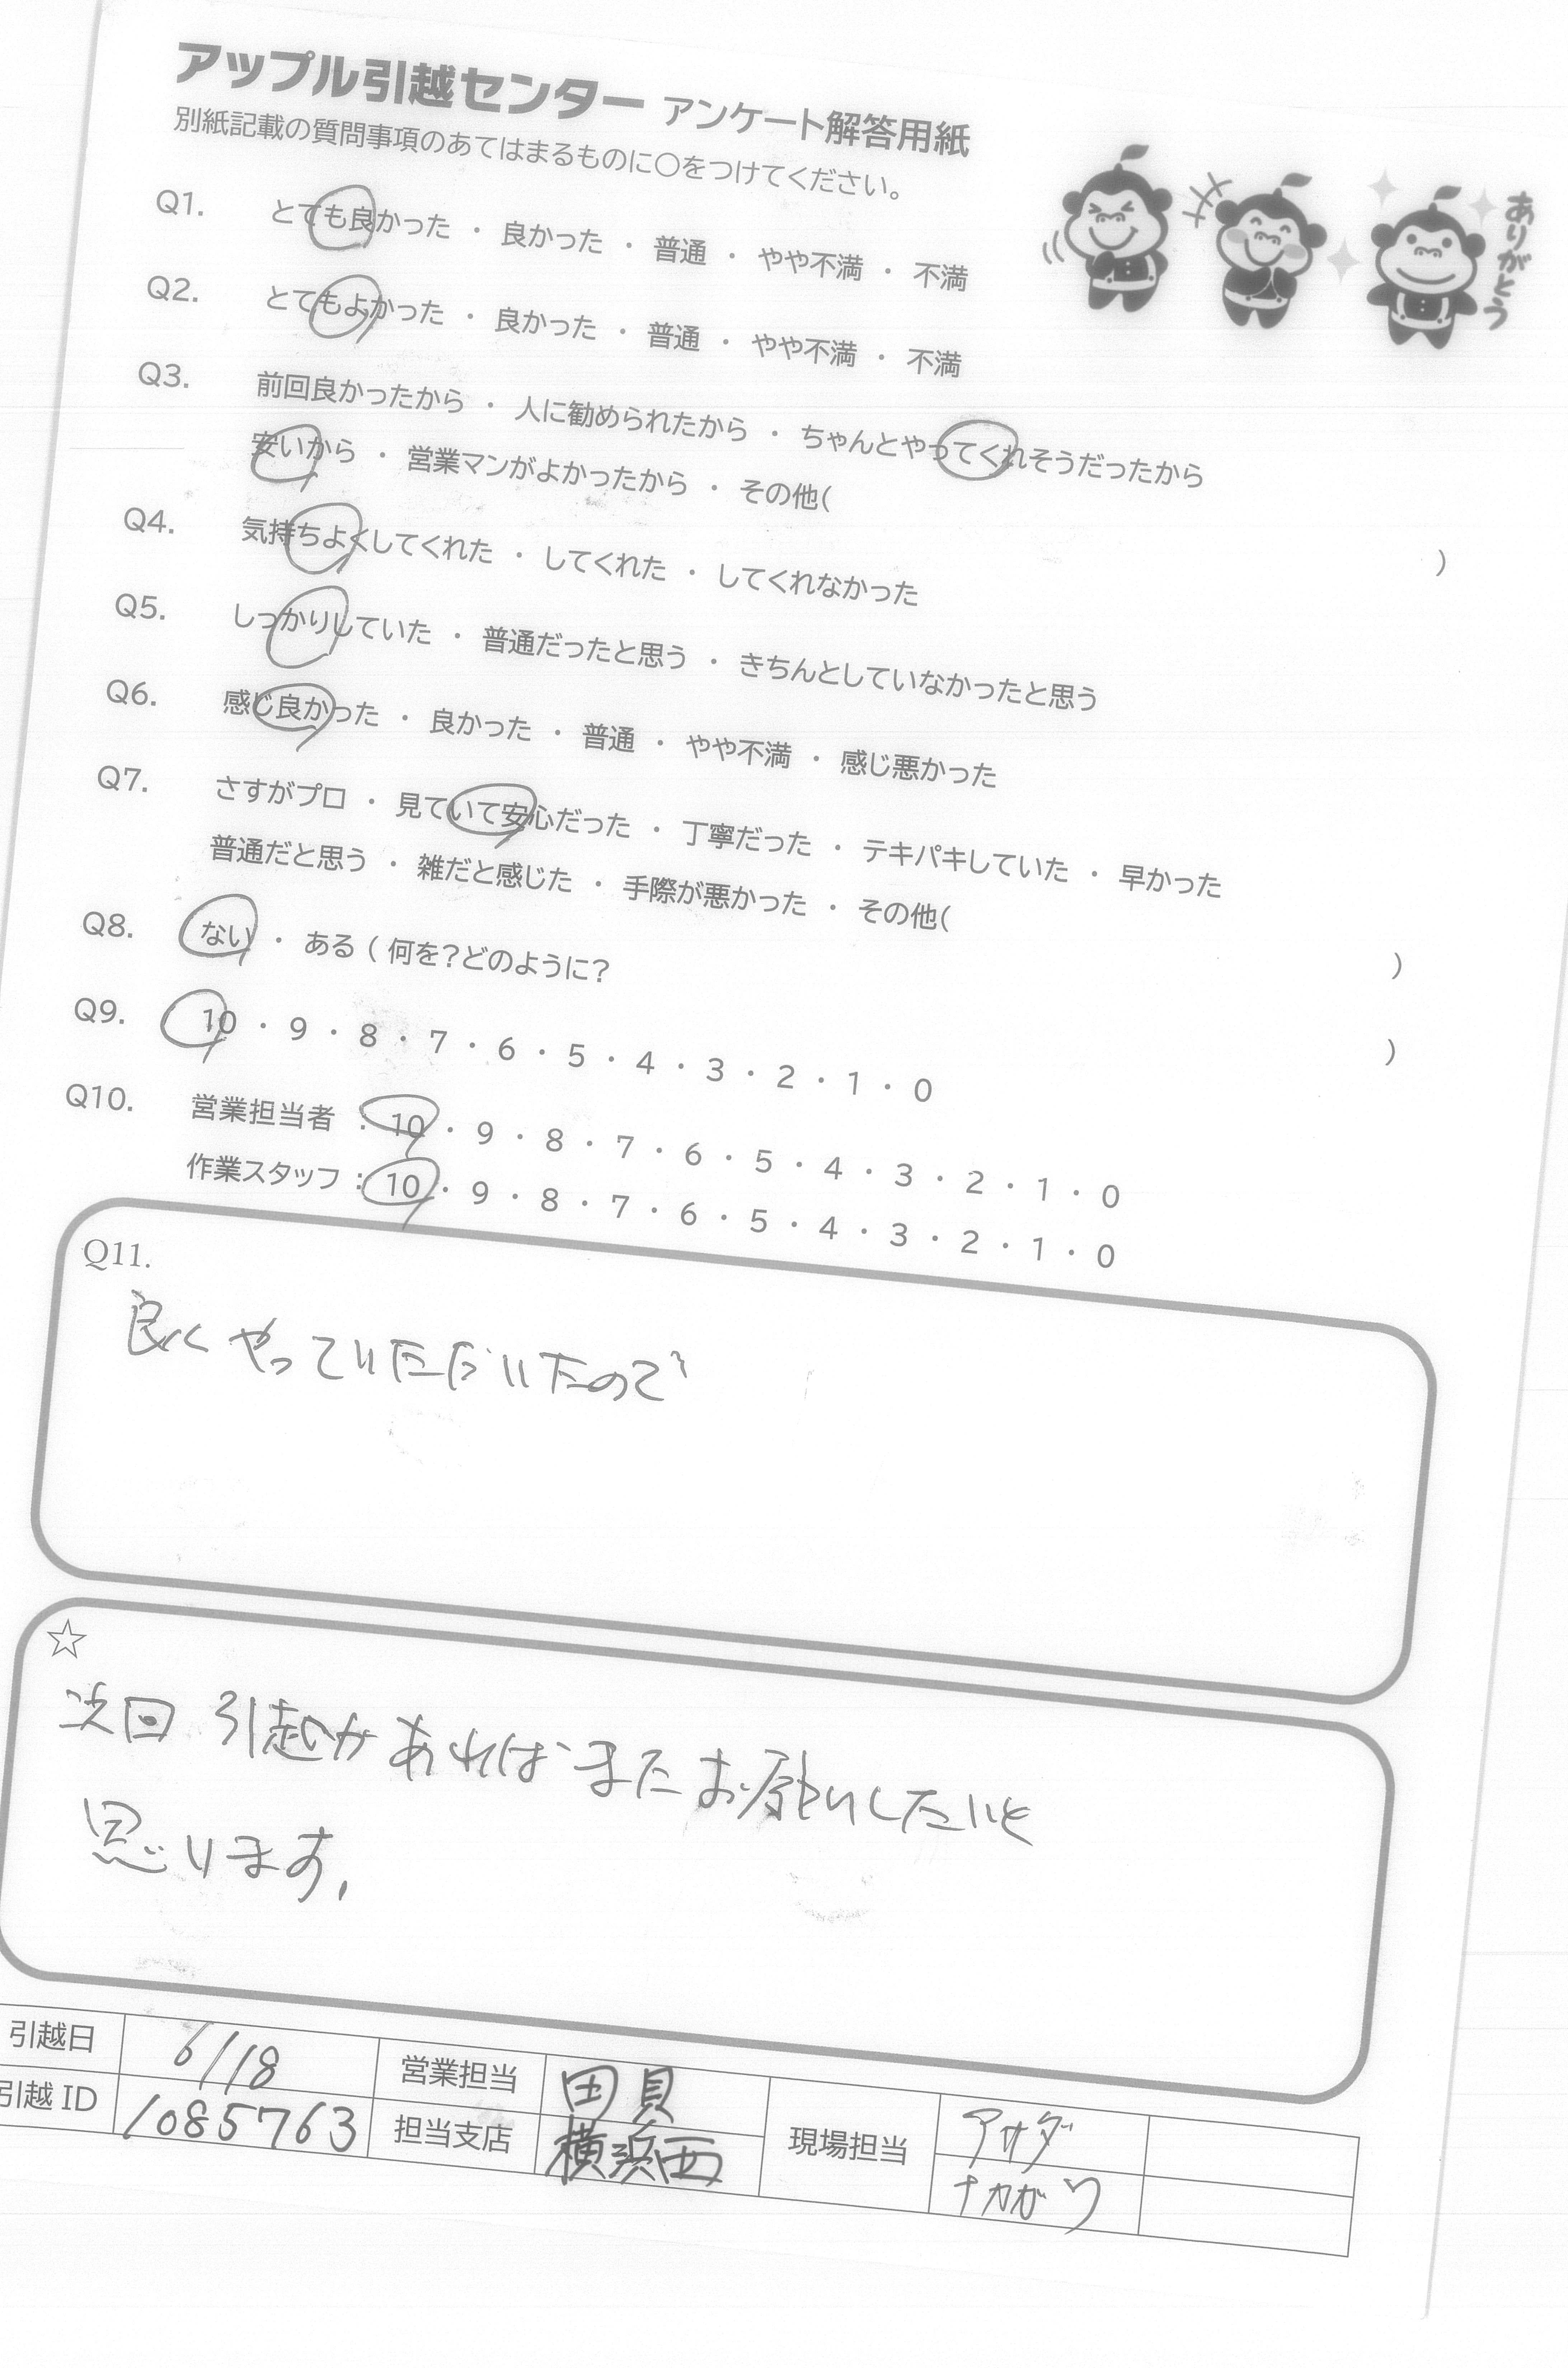 アップル引越センター アンケート解答用紙
別紙記載の質問事項のあてはまるものに〇をつけてください。
ありがとう
Q1. とても良かった ・ 良かった ・ 普通 ・ やや不満 ・ 不満
Q2. とてもよかった ・ 良かった ・ 普通 ・ やや不満 ・ 不満
Q3. 前回良かったから ・ 人に勧められたから ・ ちゃんとやってくれそうだったから
安いから ・ 営業マンがよかったから ・ その他( )
Q4. 気持ちよくしてくれた ・ してくれた ・ してくれなかった
Q5. しっかりしていた ・ 普通だったと思う ・ きちんとしていなかったと思う
Q6. 感じ良かった ・ 良かった ・ 普通 ・ やや不満 ・ 感じ悪かった
Q7. さすがプロ ・ 見ていて安心だった ・ 丁寧だった ・ テキパキしていた ・ 早かった
普通だと思う ・ 雑だと感じた ・ 手際が悪かった ・ その他( )
Q8. ない ・ ある ( 何を?どのように? )
Q9. 10 ・ 9 ・ 8 ・ 7 ・ 6 ・ 5 ・ 4 ・ 3 ・ 2 ・ 1 ・ 0
Q10. 営業担当者 : 10 ・ 9 ・ 8 ・ 7 ・ 6 ・ 5 ・ 4 ・ 3 ・ 2 ・ 1 ・ 0
作業スタッフ : 10 ・ 9 ・ 8 ・ 7 ・ 6 ・ 5 ・ 4 ・ 3 ・ 2 ・ 1 ・ 0
Q11.
良くやっていただいたので
☆
次回 引越があればまたお願いしたいと
思います。
引越日 6/18 営業担当 田貝 現場担当 アサダ
引越 ID 1085763 担当支店 横浜西